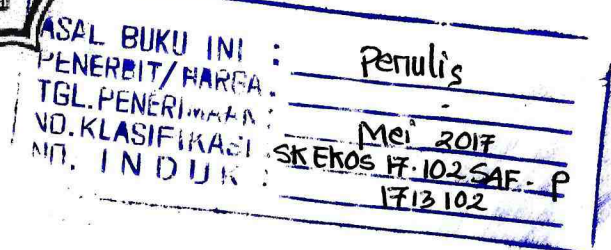 ASAL BUKU INI : Penulis
PENERBIT/HARGA. -
TGL. PENERIMAAN : Mei 2017
NO. KLASIFIKASI SK EKOS 17.102 SAF - P
NO. INDUK : 1713102